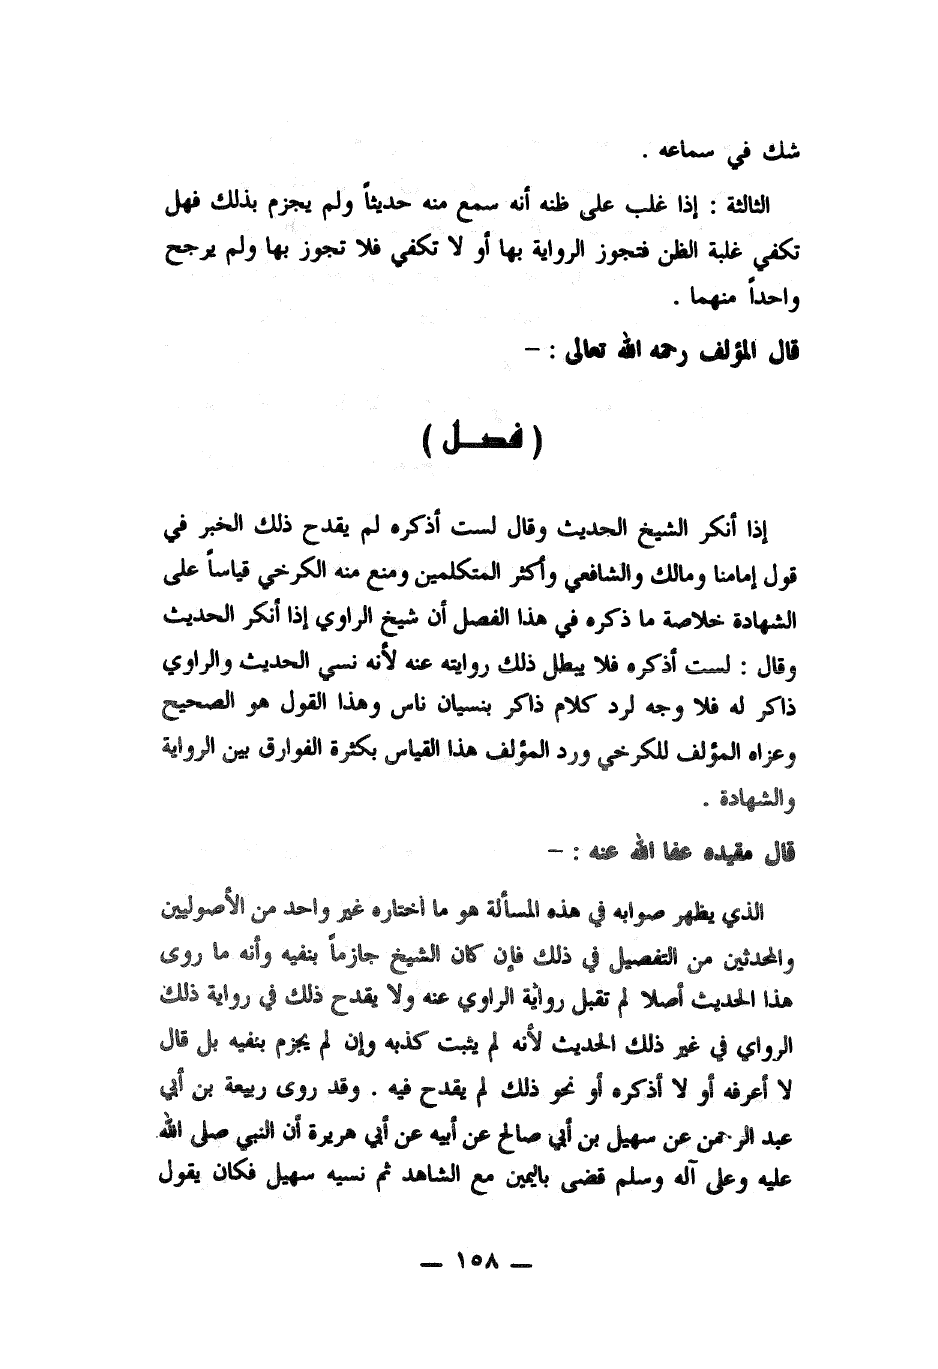 شك في سماعه .
الثالثة : إذا غلب على ظنه أنه سمع منه حديثاً ولم يجزم بذلك فهل
تكفي غلبة الظن فتجوز الرواية بها أو لا تكفي فلا تجوز بها ولم يرجح
واحداً منهما .
قال المؤلف رحمه الله تعالى : –
( فصـــل )
إذا أنكر الشيخ الحديث وقال لست أذكره لم يقدح ذلك الخبر في
قول إمامنا ومالك والشافعي وأكثر المتكلمين ومنع منه الكرخي قياساً على
الشهادة خلاصة ما ذكره في هذا الفصل أن شيخ الراوي إذا أنكر الحديث
وقال : لست أذكره فلا يبطل ذلك روايته عنه لأنه نسي الحديث والراوي
ذاكر له فلا وجه لرد كلام ذاكر بنسيان ناس وهذا القول هو الصحيح
وعزاه المؤلف للكرخي ورد المؤلف هذا القياس بكثرة الفوارق بين الرواية
والشهادة .
قال مقيده عفا الله عنه : –
الذي يظهر صوابه في هذه المسألة هو ما اختاره غير واحد من الأصوليين
والمحدثين من التفصيل في ذلك فإن كان الشيخ جازماً بنفيه وأنه ما روى
هذا الحديث أصلا لم تقبل رواية الراوي عنه ولا يقدح ذلك في رواية ذلك
الرواي في غير ذلك الحديث لأنه لم يثبت كذبه وإن لم يجزم بنفيه بل قال
لا أعرفه أو لا أذكره أو نحو ذلك لم يقدح فيه . وقد روى ربيعة بن أبي
عبد الرحمن عن سهيل بن أبي صالح عن أبيه عن أبي هريرة أن النبي صلى الله
عليه وعلى آله وسلم قضى باليمين مع الشاهد ثم نسيه سهيل فكان يقول
— ١٥٨ —